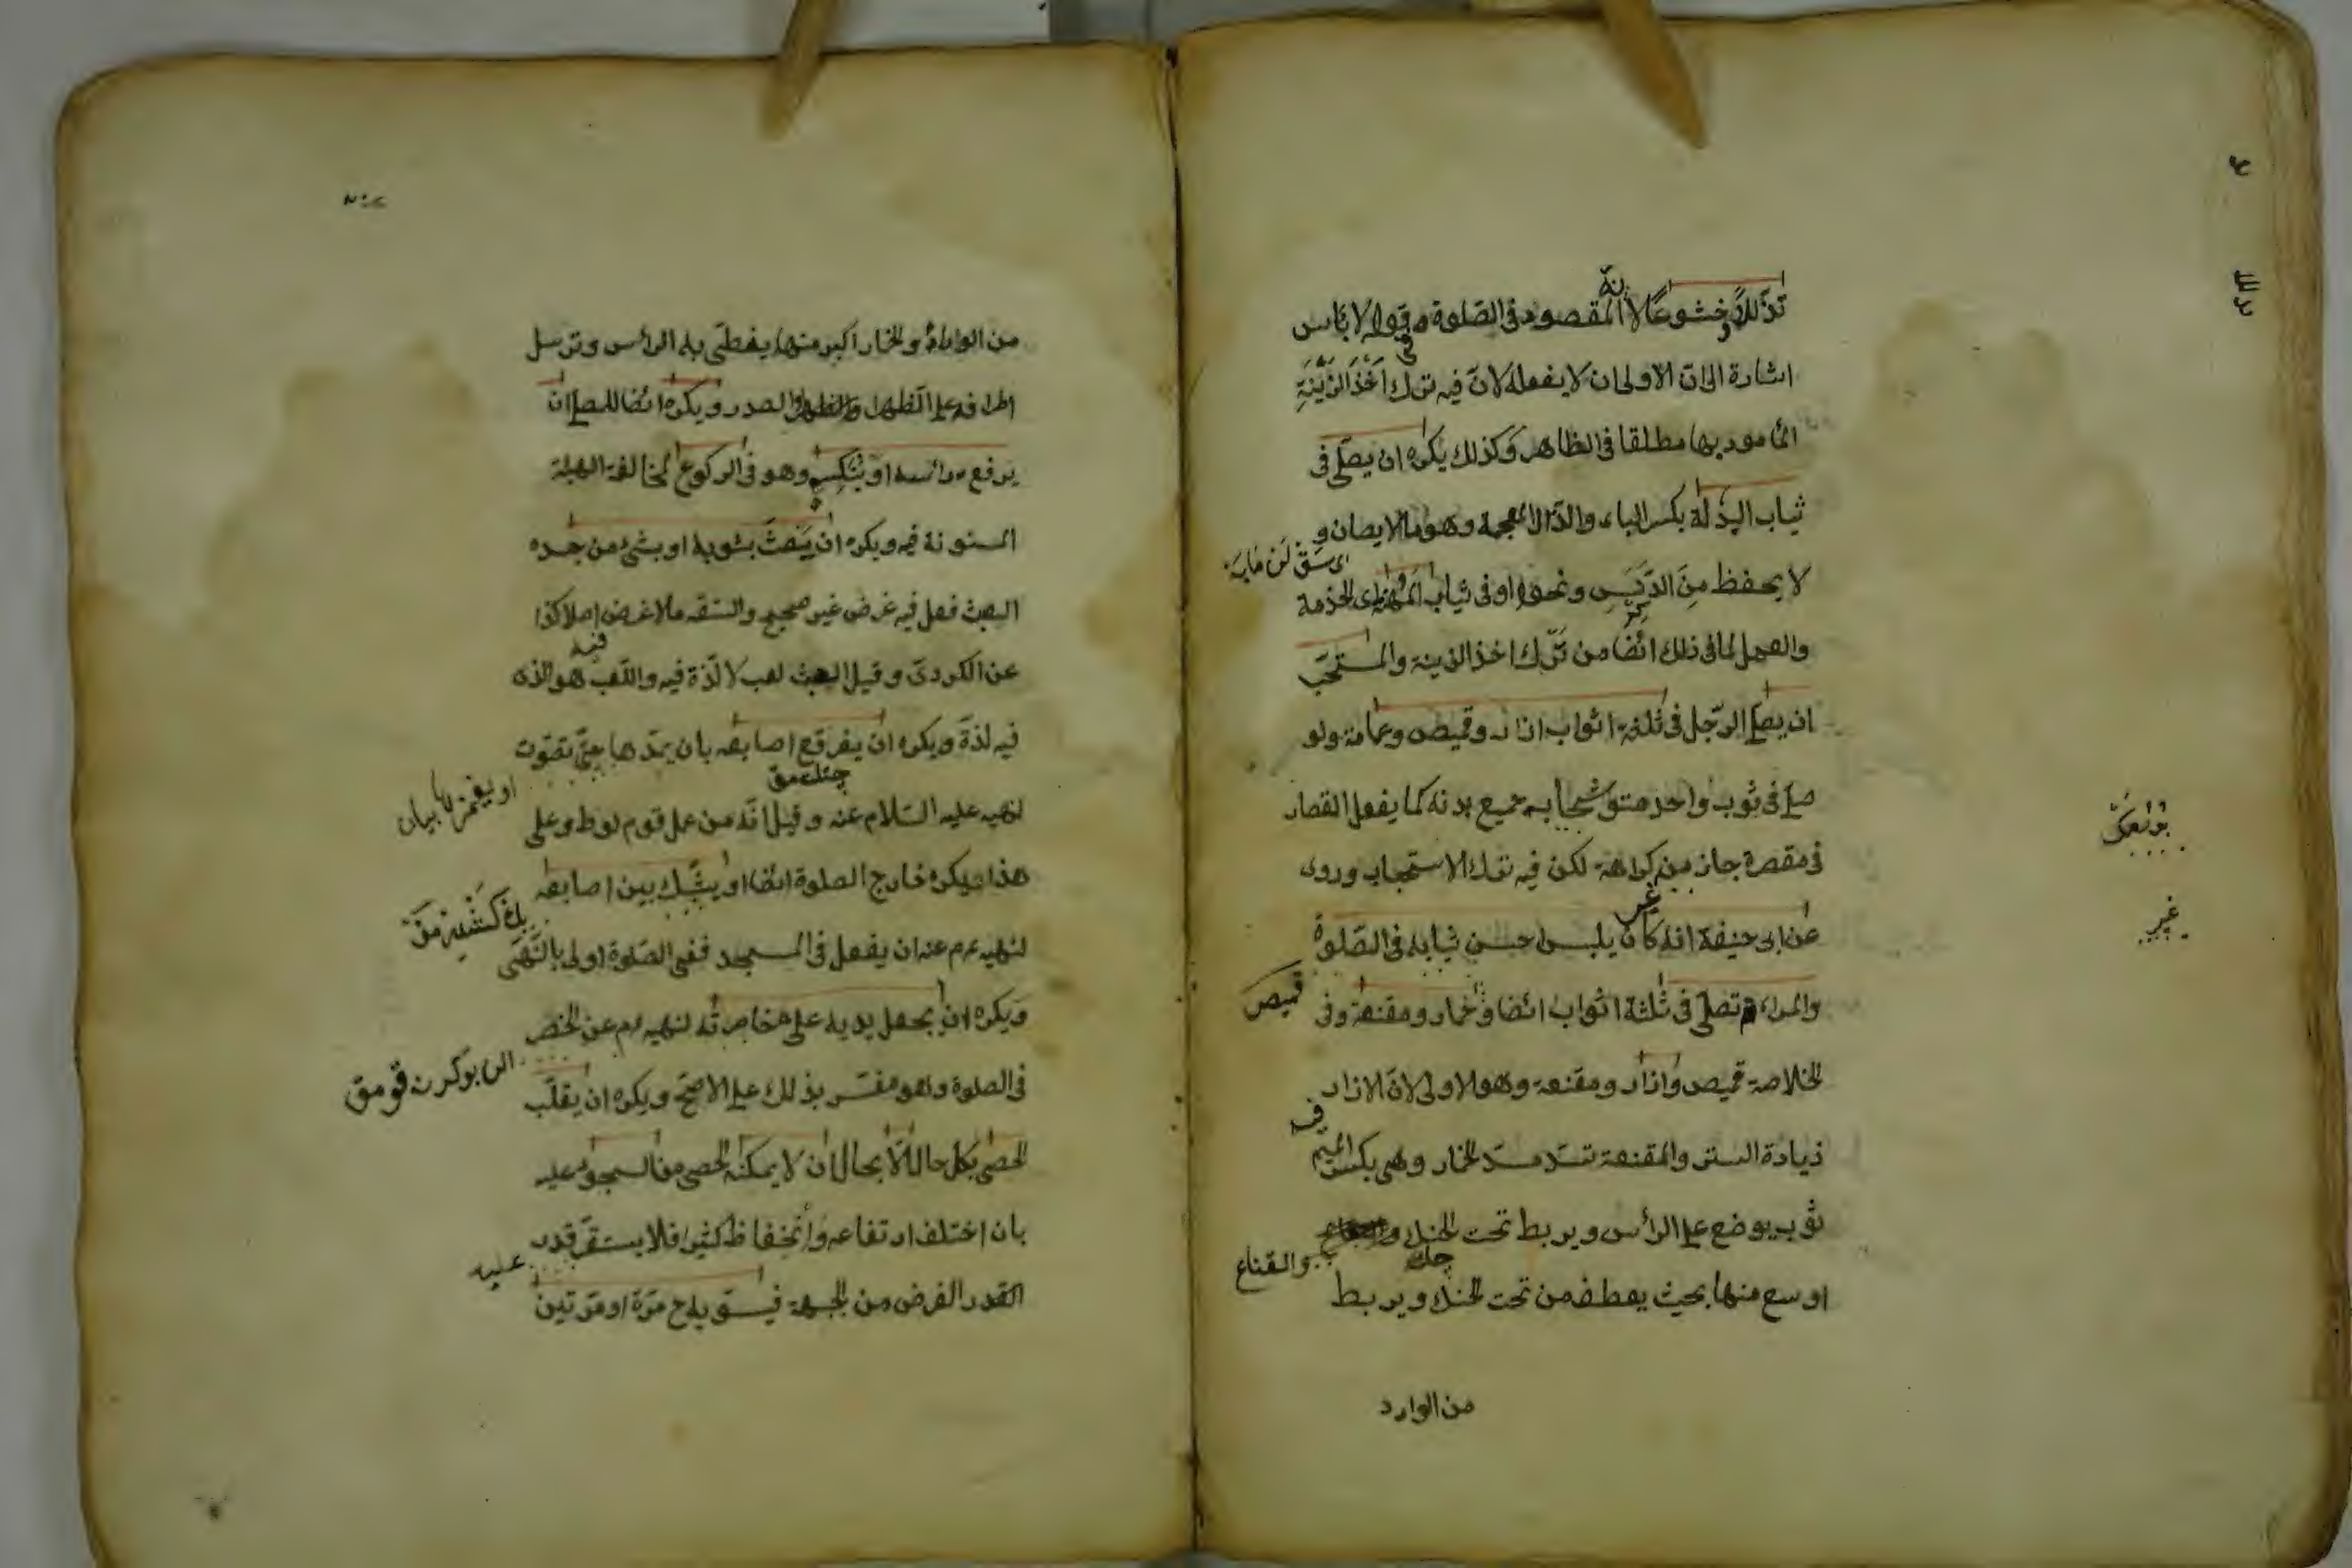 تذللا وخشوعا لانه المقصود فى الصلوة وفى قوله لا باس
اشارة الى ان الاولى ان لا يفعله لان فيه ترك اَخْذَ الزّينَةِ
المأمور بها مطلقا فى الظاهر وكذلك يكره ان يصلى فى
ثياب البِذلة بكسر الباء والذال المعجمة وهو ما لا يصان و
لا يحفظ مِنَ الدَّنَسِ ونحوه او فى ثياب المهنة اى الخذمة
والعمل لما فى ذلك ايضا من ترك اخذ الزينة والمستحب
ان يصلى الرجل فى ثلثة اثواب ازار وقميص وعمامة ولو
صلى فى ثوب واحد متوشحا به جميع بدنه كما يفعل القصار
فى مقصرة جاز من غير كراهة لكن فيه ترك الاستحباب وروى
عن ابى حنيفة انه كان يلبس احسن ثيابه فى الصلوة
والمراءة تصلى فى ثلثة اثواب ايضا قميص وخمار ومقنعة وفى
الخلاصة قميص وازار ومقنعة وهو الاولى لان الازار
فيه زيادة الستر والمقنعة تسد مسد الخمار وهى بكسر الميم
ثوب يوضع على الرأس ويربط تحت الحنك والقناع
اوسع منها بحيث يعطف من تحت الحنك ويربط
من الوارد
غير
من الوارءة والخمار اكبر منها يغطى به الرأس وترسل
اطرافه على الظهر او الصدر ويكره ايضا للمصلى ان
يرفع رأسه او ينكسه وهو فى الركوع لمخالفة الهيئة
المسنونة فيه ويكره ان يعبث بثوبه او بشئ من جسده
العبث فعل فيه غرض غير صحيح والسفه ما لا غرض فيه اصلا كذا
عن الكردى وقيل العبث لعب لا لذة فيه واللعب هو الذى
فيه لذة ويكره ان يفرقع اصابعه بان يمدها حتى تصوت
لنهيه عليه السلام عنه وقيل انه من عمل قوم لوط وعلى
هذا فيكره خارج الصلوة ايضا او يشبك بين اصابعه
لنهيه عم عنه ان يفعل فى المسجد ففى الصلوة اولى بالنهى
ويكره ان يجعل يديه على خاصرته لنهيه عم عن الخصر
فى الصلوة وهو مفسر بذلك على الاصح ويكره ان يقلب
الحصى بكل حال الا بحال ان لا يمكنه الحصى من السجود عليه
بان اختلف ارتفاعه وانخفاظ كثيرا فلا يستقر عليه قدر
القدر الفرض من الجبهة فيسويه ح مرة او مرتين